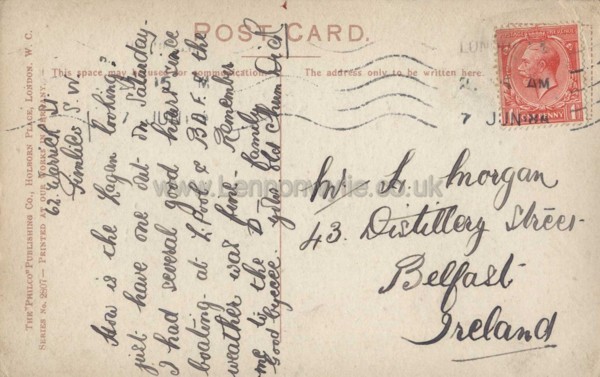 POST CARD.
This space may be used for communication.
The address only to be written here.
THE "PHILCO" PUBLISHING CO., HOLBORN PLACE, LONDON, W. C.
SERIES No. 2807 — PRINTED AT OUR WORKS IN GERMANY.
62. Warwick St
Pimlico S.W
How is the Lagan looking?
just have one out on Saturday.
I had several good hours since
boating at L.Pool & B the
weather was fine. Remember
me to the D family
Good byeeee. yr Old Chum Dick
Mr H. Morgan
43. Distillery Street
Belfast
Ireland
LON
AM
7 JUN
PENNY
www.bennonwylie.co.uk